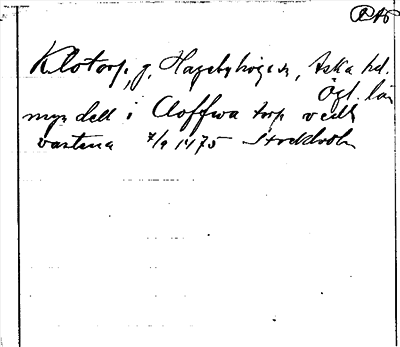 RAP
Klotorp, g, Hagebyhöga sn, Aska hd.
Ögl. län
myn dell i Cloffwa torp vedh
vastena 7/9 1475 Stockholm